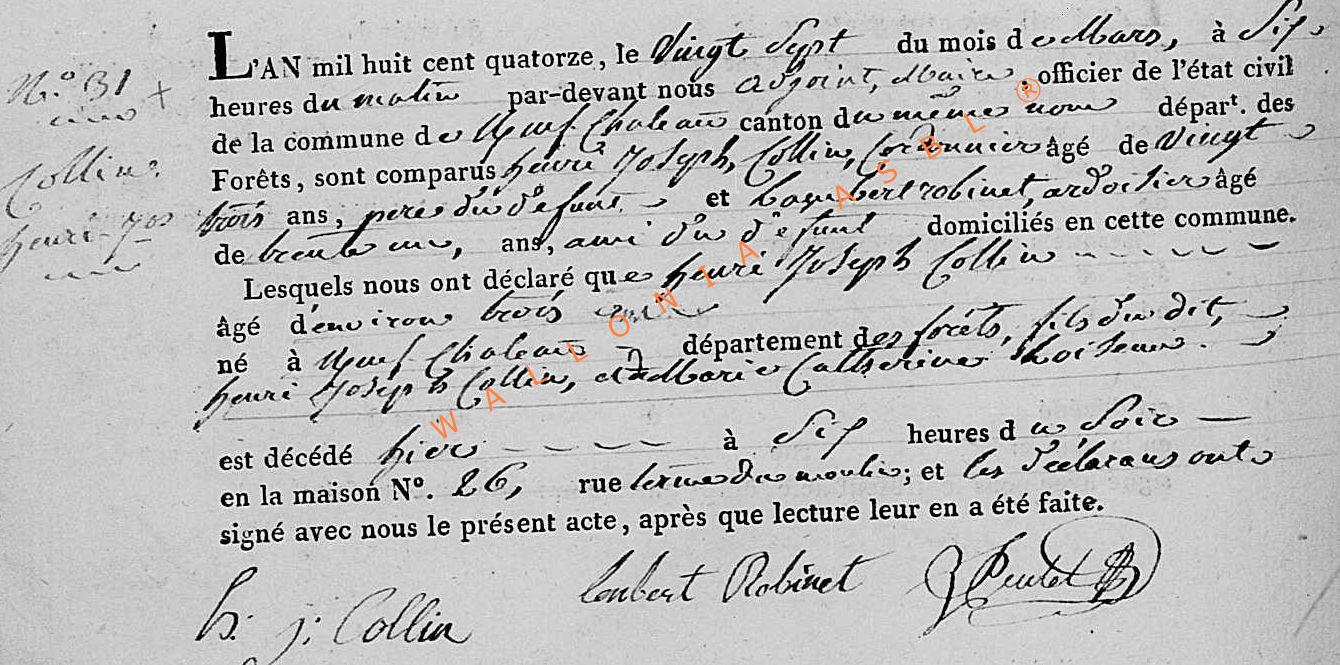 N.° 31
Collin
henri Jos
L'AN mil huit cent quatorze, le Vingt Sept du mois de Mars, à Six
heures du matin par-devant nous adjoint, Maire officier de l'état civil
de la commune de Neuf-Chateau canton du même nom départ. des
Forêts, sont comparus henri Joseph Collin, Cordonnier âgé de Vingt
trois ans, pere du défunt et Lambert robinet, ardoisier âgé
de trente un, ans, ami du défunt domiciliés en cette commune.
Lesquels nous ont déclaré que henri Joseph Collin
âgé d'environ trois
né à Neuf-Chateau département des forêts, fils du dit,
henri Joseph Collin, et de Marie Catherine
est décédé hier à Six heures du Soir
en la maison N°. 26, rue du moulin; et les déclarans ont
signé avec nous le présent acte, après que lecture leur en a été faite.
h. j: Collin
Lambert Robinet
WALLONIA ASBL ®